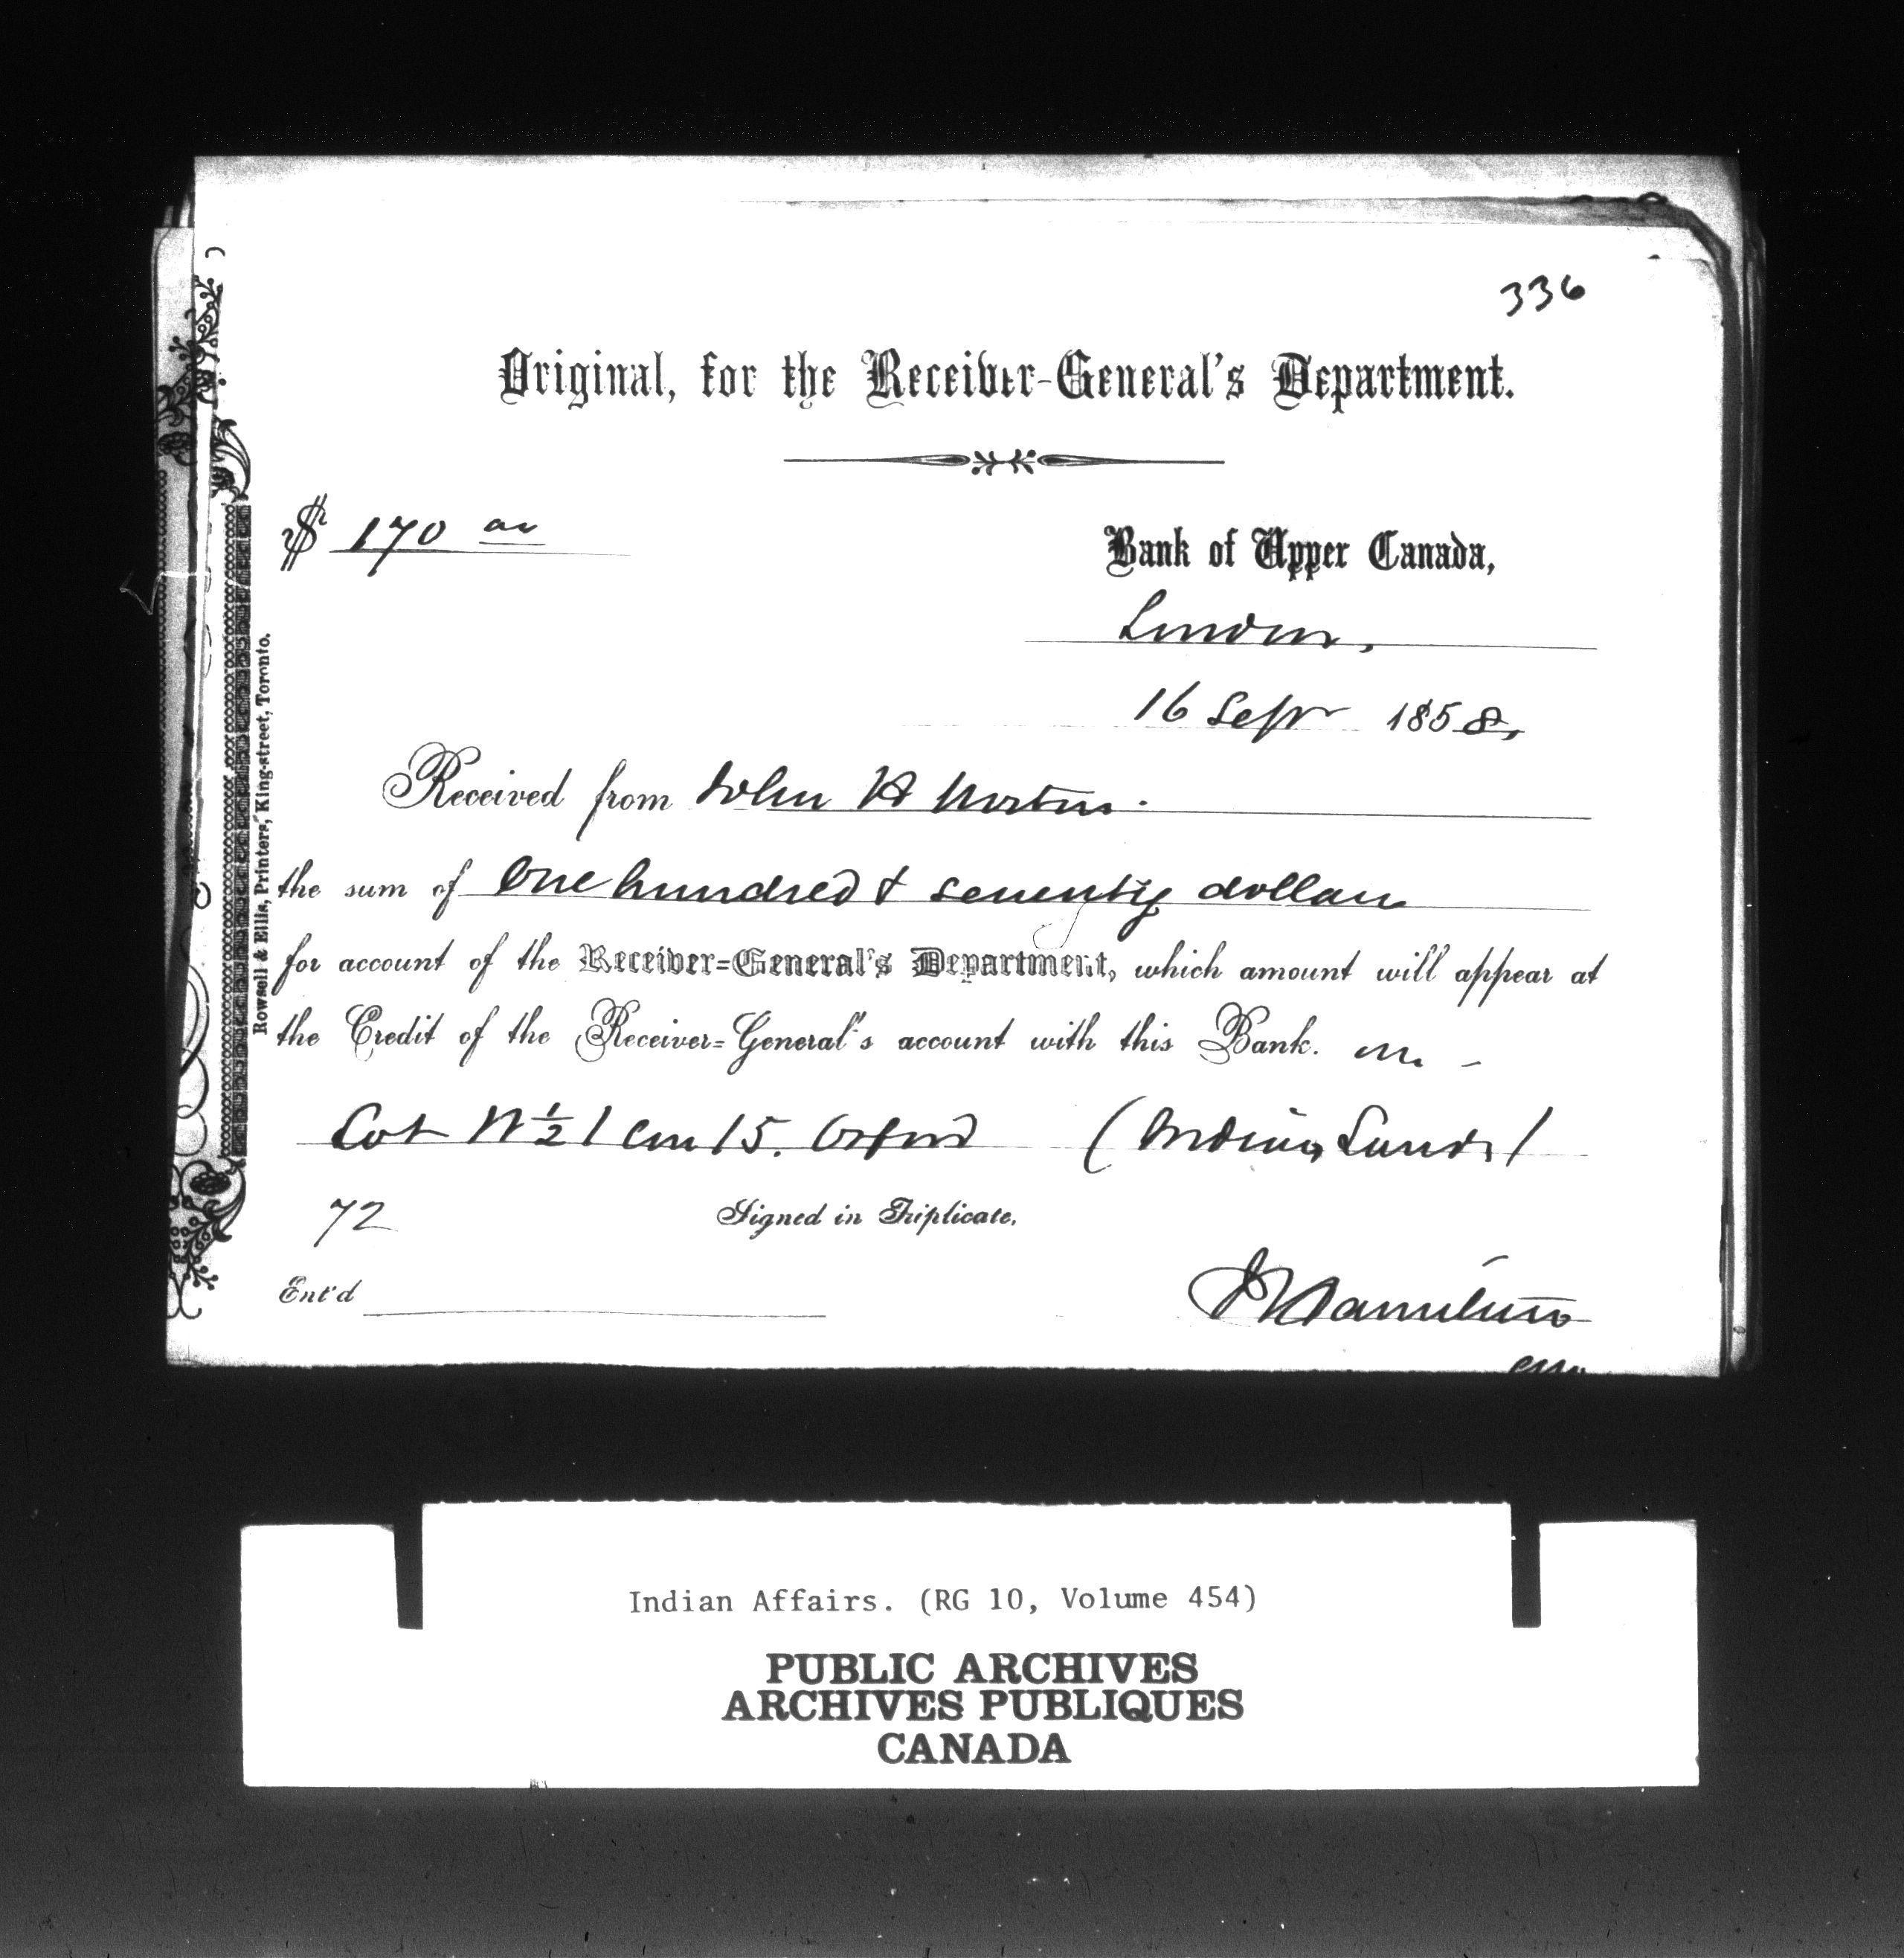 336
Original, for the Receiver-General's Department.
$ 170 00
Bank of Upper Canada,
London,
16 Sept 1858,
Received from John H Norton.
the sum of One hundred & seventy dollars
for account of the Receiver=General's Department, which amount will appear at
the Credit of the Receiver=General's account with this Bank. on
Lot N ½ 1 Con 15. Orford (Indian Lands)
72 Signed in Triplicate.
Ent'd
Hamilton
Rowsell & Ellis, Printers, King-street, Toronto.
Indian Affairs. (RG 10, Volume 454)
PUBLIC ARCHIVES
ARCHIVES PUBLIQUES
CANADA